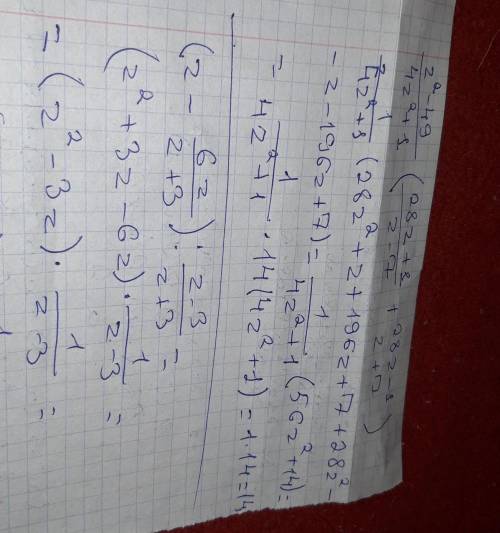 z²-49/4z²+1 (28z+1/z-7 + 28z-1/z+7)
1/4z²+1 (28z²+z+196z+7+28z²-
-z-196z+7)= 1/4z²+1 (56z²+14)=
= 1/4z²+1 · 14(4z²+1)=1·14=14
(z - 6z/z+3) : z-3/z+3 =
(z²+3z-6z)· 1/z-3 =
= (z²-3z)· 1/z-3 =